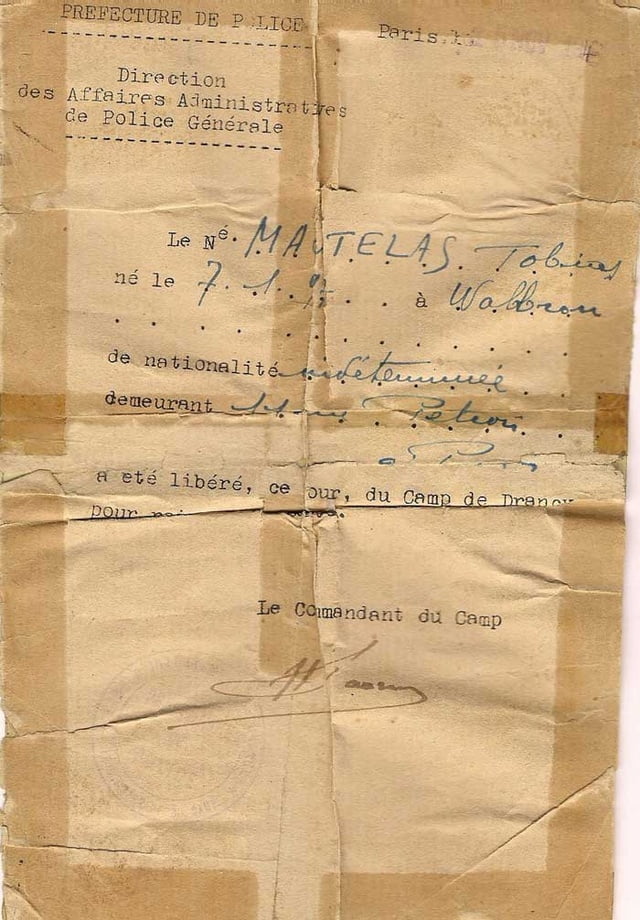 PREFECTURE DE POLICE
Paris, le
Direction
des Affaires Administratives
de Police Générale
Le Né. MANTELAS. Tobias
né le 7. 1. à Wolbrom
de nationalité indéterminée
demeurant rue Pétion
à Paris
a eté libéré, ce jour, du Camp de Drancy
pour
Le Commandant du Camp